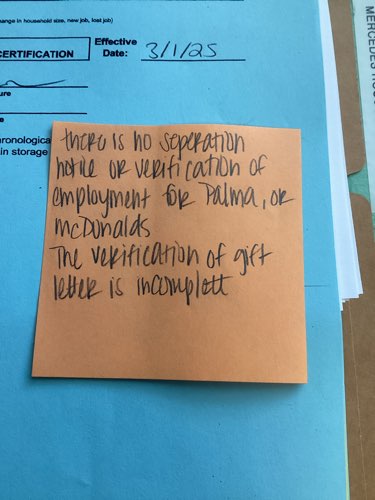 ange in household size, new job, lost job)
ERTIFICATION
Effective
Date: 3/1/25
ure
e
ronologica
in storage
there is no seperation
notile or verification of
employment for Palma, or
mcDonalds
The verification of gift
letter is incomplett
MERCEDES